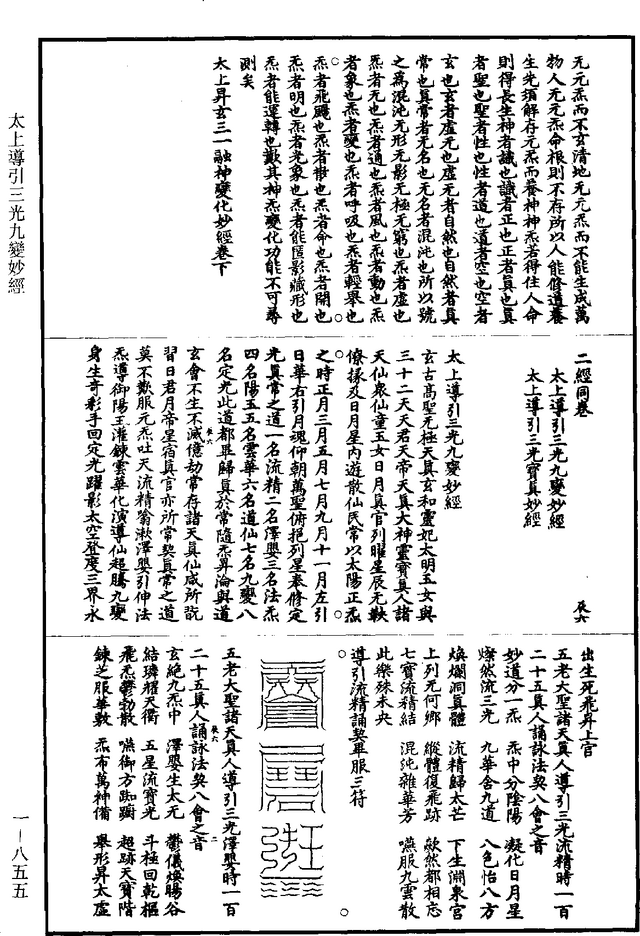 太上導引三光九變妙經
一—八五五
无元炁而不玄清地无元炁而不能生成萬
物人无元炁命根則不存所以人能修道養
生先須解存元炁而養神神炁若得住人命
則得長生神者識也識者正也正者真也真
者聖也聖者性也性者道也道者空也空者
玄也玄者虛无也虛无者自然也自然者真
常也真常者无名也无名者混沌也所以號
之爲混沌无形无影无極无窮也炁者虛也
炁者无也炁者通也炁者風也炁者動也炁
者象也炁者變也炁者呼吸也炁者輕舉也
炁者飛颺也炁者散也炁者命也炁者開也
炁者明也炁者光象也炁者能匿影藏形也
炁者能運轉也歎其神炁變化功能不可尋
測矣
太上昇玄三一融神變化妙經卷下
二經同卷 
太上導引三光九變妙經
太上導引三光寶真妙經
太上導引三光九變妙經
玄古高聖无極天真玄和靈妃太明玉女與
三十二天天君天帝天真大神靈寶真人諸
天仙衆仙童玉女日月真官列曜星辰无鞅
僚掾及日月星內遊散仙民常以太陽正炁
之時正月三月五月七月九月十一月左引
日華右引月魂仰朝萬聖俯挹列星奉修定
光真常之道一名流精二名澤嬰三名法炁
四名陽玉五名雲華六名道仙七名九變八
名定光此道都畢歸真於常隨炁昇淪與道
玄會不生不滅億劫常存諸天真仙咸所翫
習日君月帝星宿真官亦所常契真常之道
莫不歎服元炁吐天流精翁漱澤嬰引伸法
炁導御陽玉灌鍊雲華化演導仙超騰九變
身生奇彩手回定光躍影太空登度三界永
出生死飛昇上宫
五老大聖諸天真人導引三光流精時一百
二十五真人誦詠法契八會之音
妙道分一炁 炁中分陰陽 凝化日月星
燦然流三光 九華含九道 八色怡八方
煥爛洞真體 流精歸太芒 下生淵泉宫
上列元何鄉 縱體復飛跡 欻然都相忘
七寶流精結 混沌雜華芳 嚥服九雲散
此樂殊未央
導引流精誦契畢服三符
五老大聖諸天真人導引三光澤嬰時一百
二十五真人誦詠法契八會之音
玄絶九炁中 澤嬰生太无 鬱儀煥暘谷
結璘耀天衢 五星流寶光 斗極回乾樞
飛炁鬱勃散 嚥御方踟躕 超跡天寶階
鍊芝服華敷 炁布萬神備 舉形昇太虛